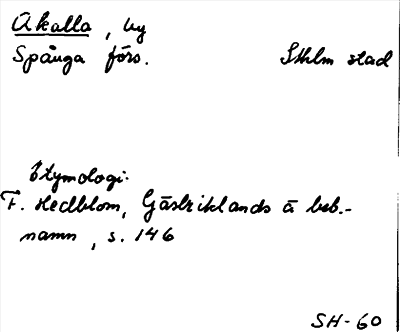 Akalla, by
Spånga förs. Sthlm stad
Etymologi:
F. Hedblom, Gästriklands ä beb.-
namn, s. 146
SH-60